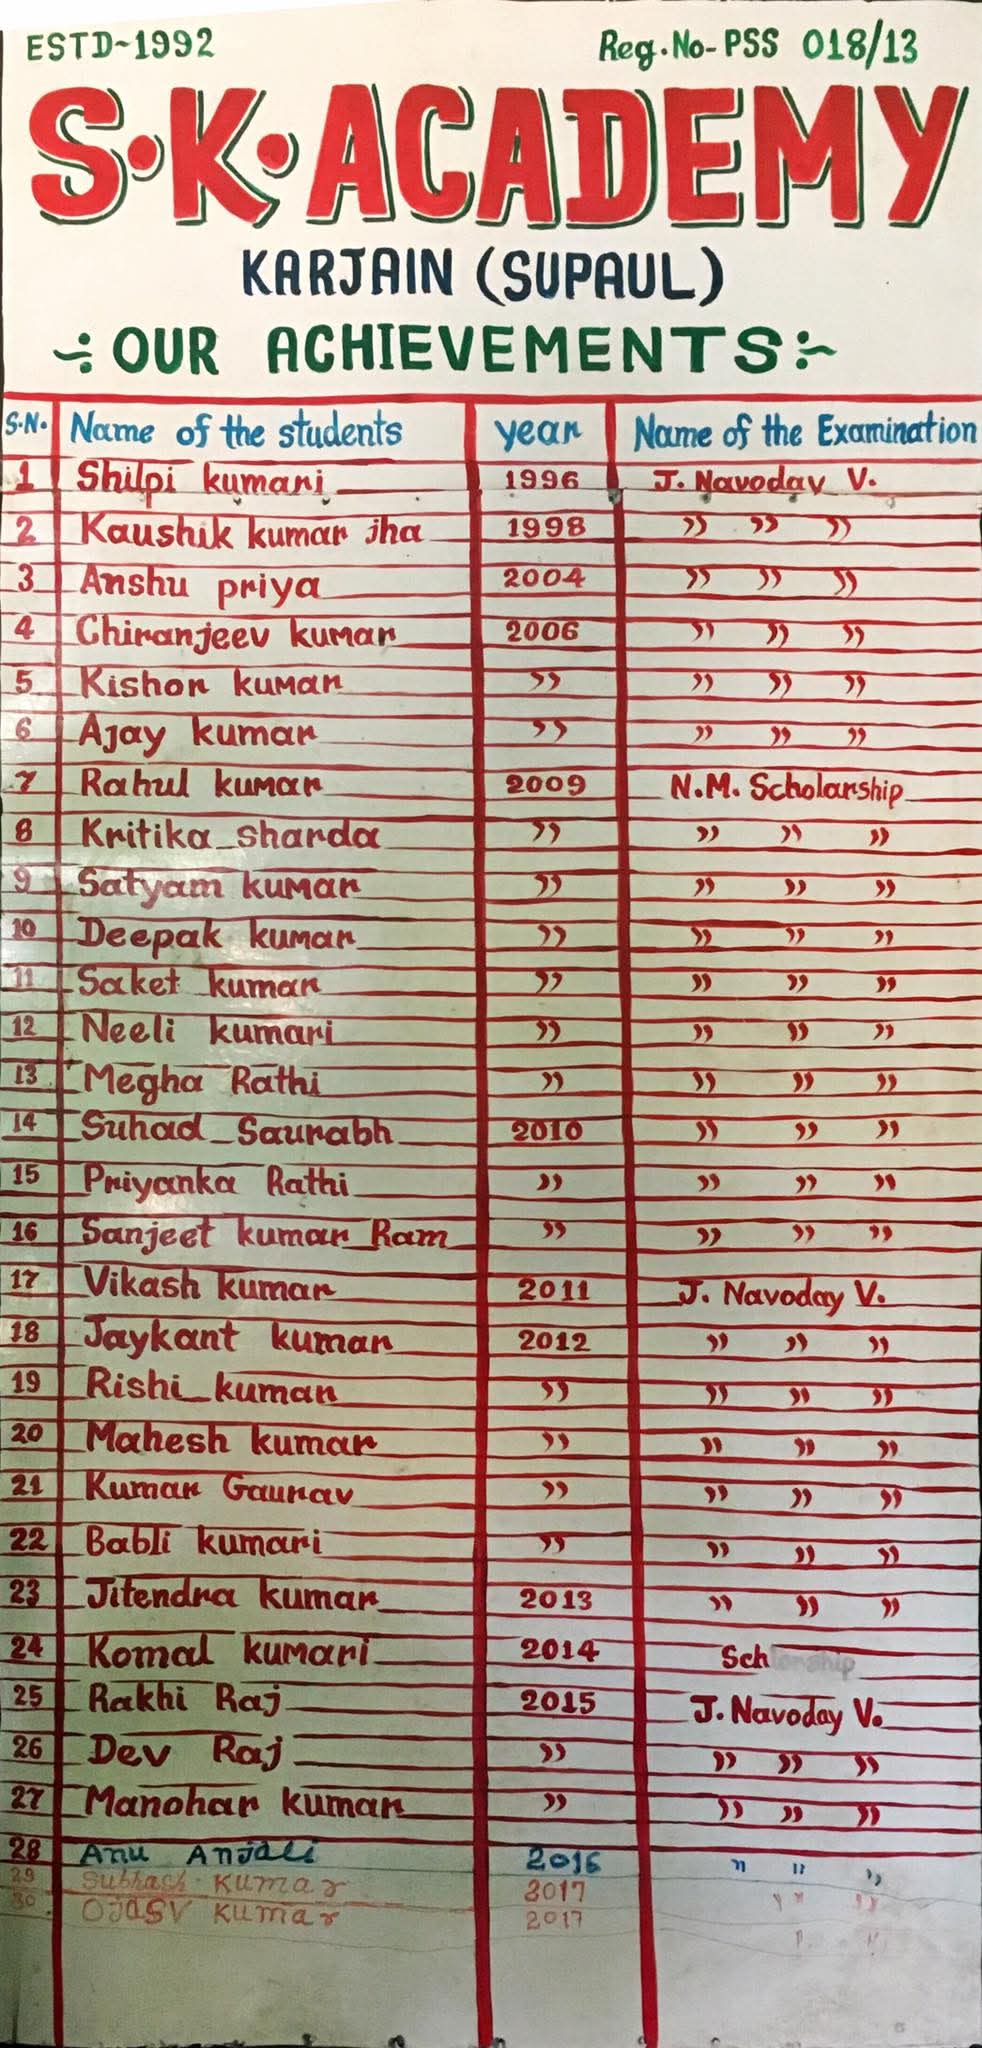 ESTD~1992 Reg.No-PSS 018/13
S.K.ACADEMY
KARJAIN (SUPAUL)
OUR ACHIEVEMENTS
S.N. Name of the students year Name of the Examination
1 Shilpi kumari 1996 J. Navoday V.
2 Kaushik kumar jha 1998 " " "
3 Anshu priya 2004 " " "
4 Chiranjeev kumar 2006 " " "
5 Kishor kumar " " " "
6 Ajay kumar " " " "
7 Rahul kumar 2009 N.M. Scholarship
8 Kritika sharda " " " "
9 Satyam kumar " " " "
10 Deepak kumar " " " "
11 Saket kumar " " " "
12 Neeli kumari " " " "
13 Megha Rathi " " " "
14 Suhad Saurabh 2010 " " "
15 Priyanka Rathi " " " "
16 Sanjeet kumar Ram " " " "
17 Vikash kumar 2011 J. Navoday V.
18 Jaykant kumar 2012 " " "
19 Rishi kumar " " " "
20 Mahesh kumar " " " "
21 Kumar Gaurav " " " "
22 Babli kumari " " " "
23 Jitendra kumar 2013 " " "
24 Komal kumari 2014
25 Rakhi Raj 2015 J. Navoday V.
26 Dev Raj " " " "
27 Manohar kumar " " " "
28 Anu Anjali 2016 " " "
29 Kumar 2017 " "
30 OJASV Kumar 2017